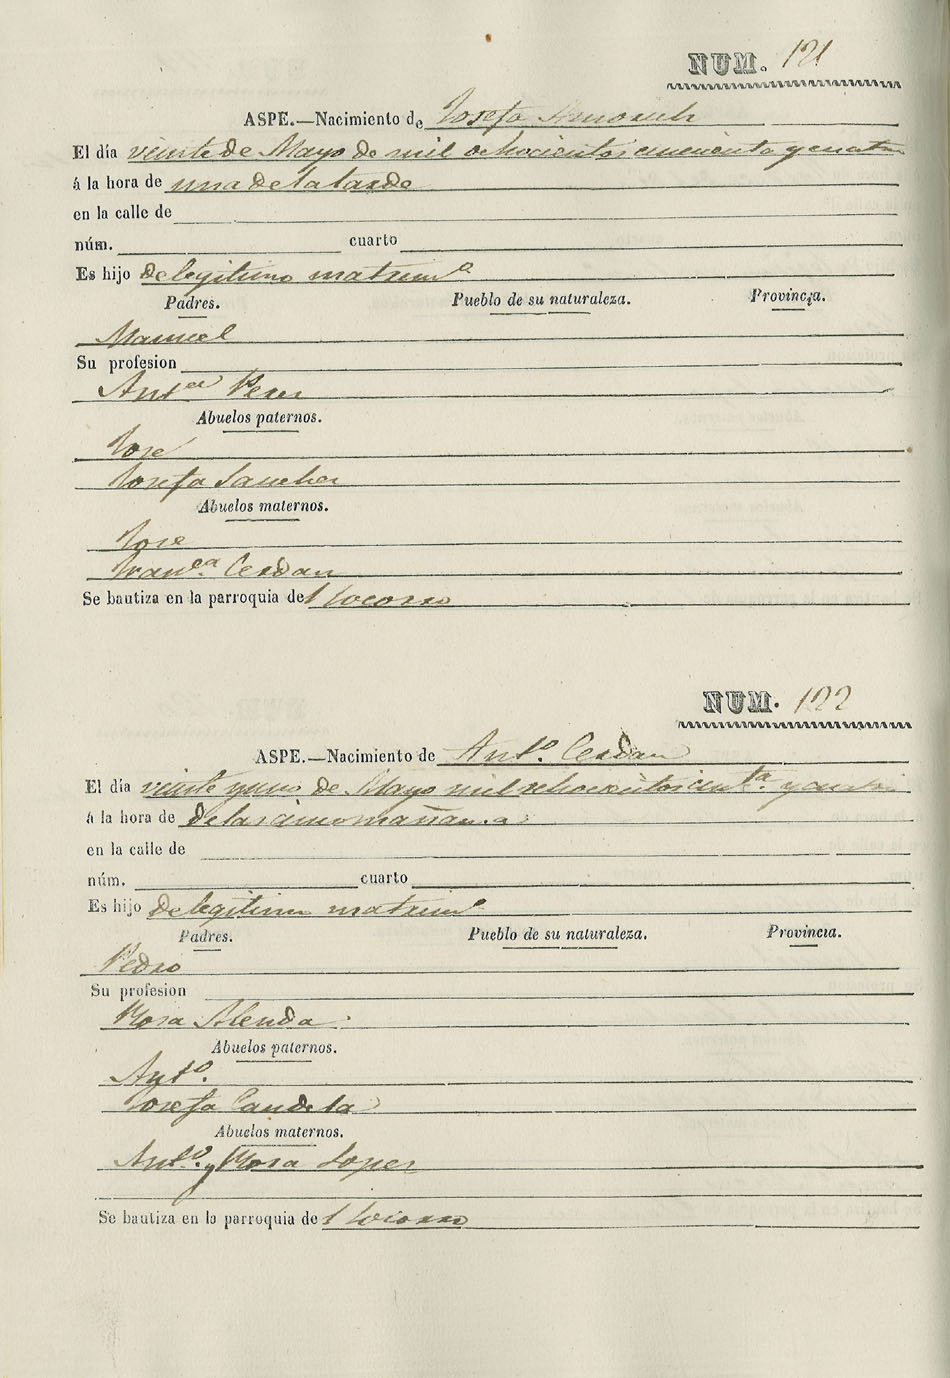 NUM. 121
ASPE.—Nacimiento de Josefa Amorich
El día veinte de Mayo de mil ochocientos cincuenta y cuatro
á la hora de una de la tarde
en la calle de
núm. cuarto
Es hijo de legitimo matrimº
Padres. Pueblo de su naturaleza. Provincia.
Manuel
Su profesion
Antª Perez
Abuelos paternos.
Jose
Josefa Sanchez
Abuelos maternos.
Jose
Franca Cerdan
Se bautiza en la parroquia del Socorro
NUM. 122
ASPE.—Nacimiento de Antº. Cerdan
El día veinte y uno de Mayo mil ochocientos cinta. y cuatro
á la hora de de las cinco mañana
en la calle de
núm. cuarto
Es hijo de legitimo matrimº
Padres. Pueblo de su naturaleza. Provincia.
Pedro
Su profesion
Rosa Alenda
Abuelos paternos.
Antº.
Josefa Candela
Abuelos maternos.
Antº. y Rosa Lopez
Se bautiza en la parroquia del Socorro